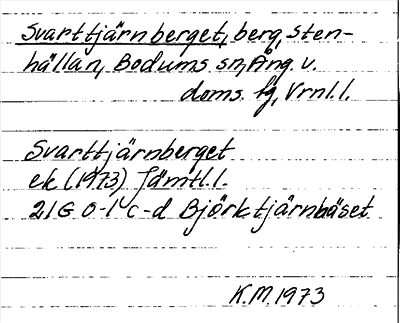 Svarttjärnberget, berg, sten-
hällan, Bodums sn, Ång. v.
doms. fg, Vrnl. l.
Svarttjärnberget
ek (1973) Jämtl. l.
21G 0-1 c-d Björktjärnbäset
K.M. 1973